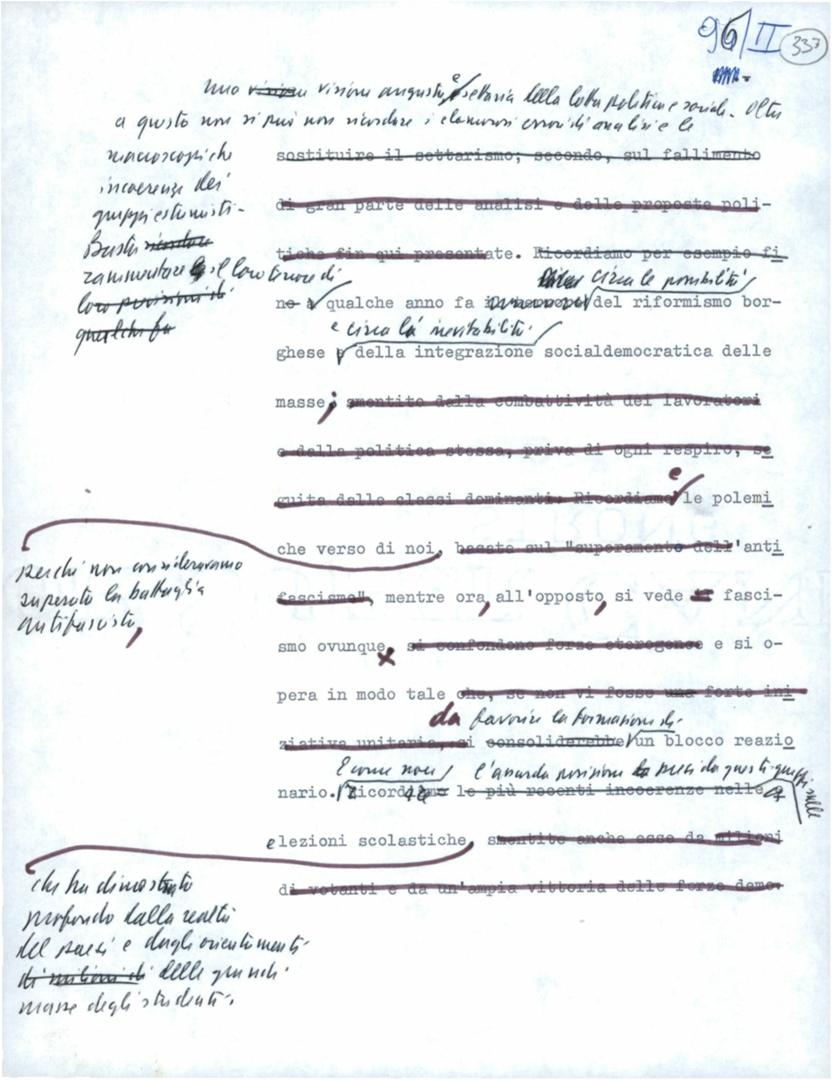 96/II 337
una visione visione angusta e settaria della lotta politica e sociale. Oltre
a questo non si può non ricordare i clamorosi errori di analisi e le
macroscopiche
incoerenze dei
gruppi estremisti.
Basta ricordare
rammentare il loro
loro previsioni di
qualche fa
sostituire il settarismo; secondo, sul fallimento
di gran parte delle analisi e delle proposte poli-
tiche fin qui presentate. Ricordiamo per esempio fi
circa le possibilità
no a qualche anno fa del riformismo bor-
e circa la inevitabilità
ghese e della integrazione socialdemocratica delle
masse; smentito dalla combattività dei lavoratori
e dalla politica stessa, priva di ogni respiro, se
guita delle classi dominanti. Ricordiamo e le polemi
che verso di noi, basate sul "superamento dell'anti
perché non consideravamo
superata la battaglia
antifascista,
fascismo", mentre ora, all'opposto, si vede fasci-
smo ovunque, si confondono forze eterogenee e si o-
pera in modo tale che, se non vi fosse una forte ini
da favorire la formazione di
ziativa unitaria, si consoliderebbe un blocco reazio
E come non l'assurda posizione presa da questi gruppi sulle
nario. Ricordiamo le più recenti incoerenze nelle
elezioni scolastiche, smentito anche esse da milioni
di votanti e da un'ampia vittoria delle forze demo-
che ha dimostrato
profondo dalla realtà
del paese e dagli orientamenti
di milioni di delle grandi
masse degli studenti.